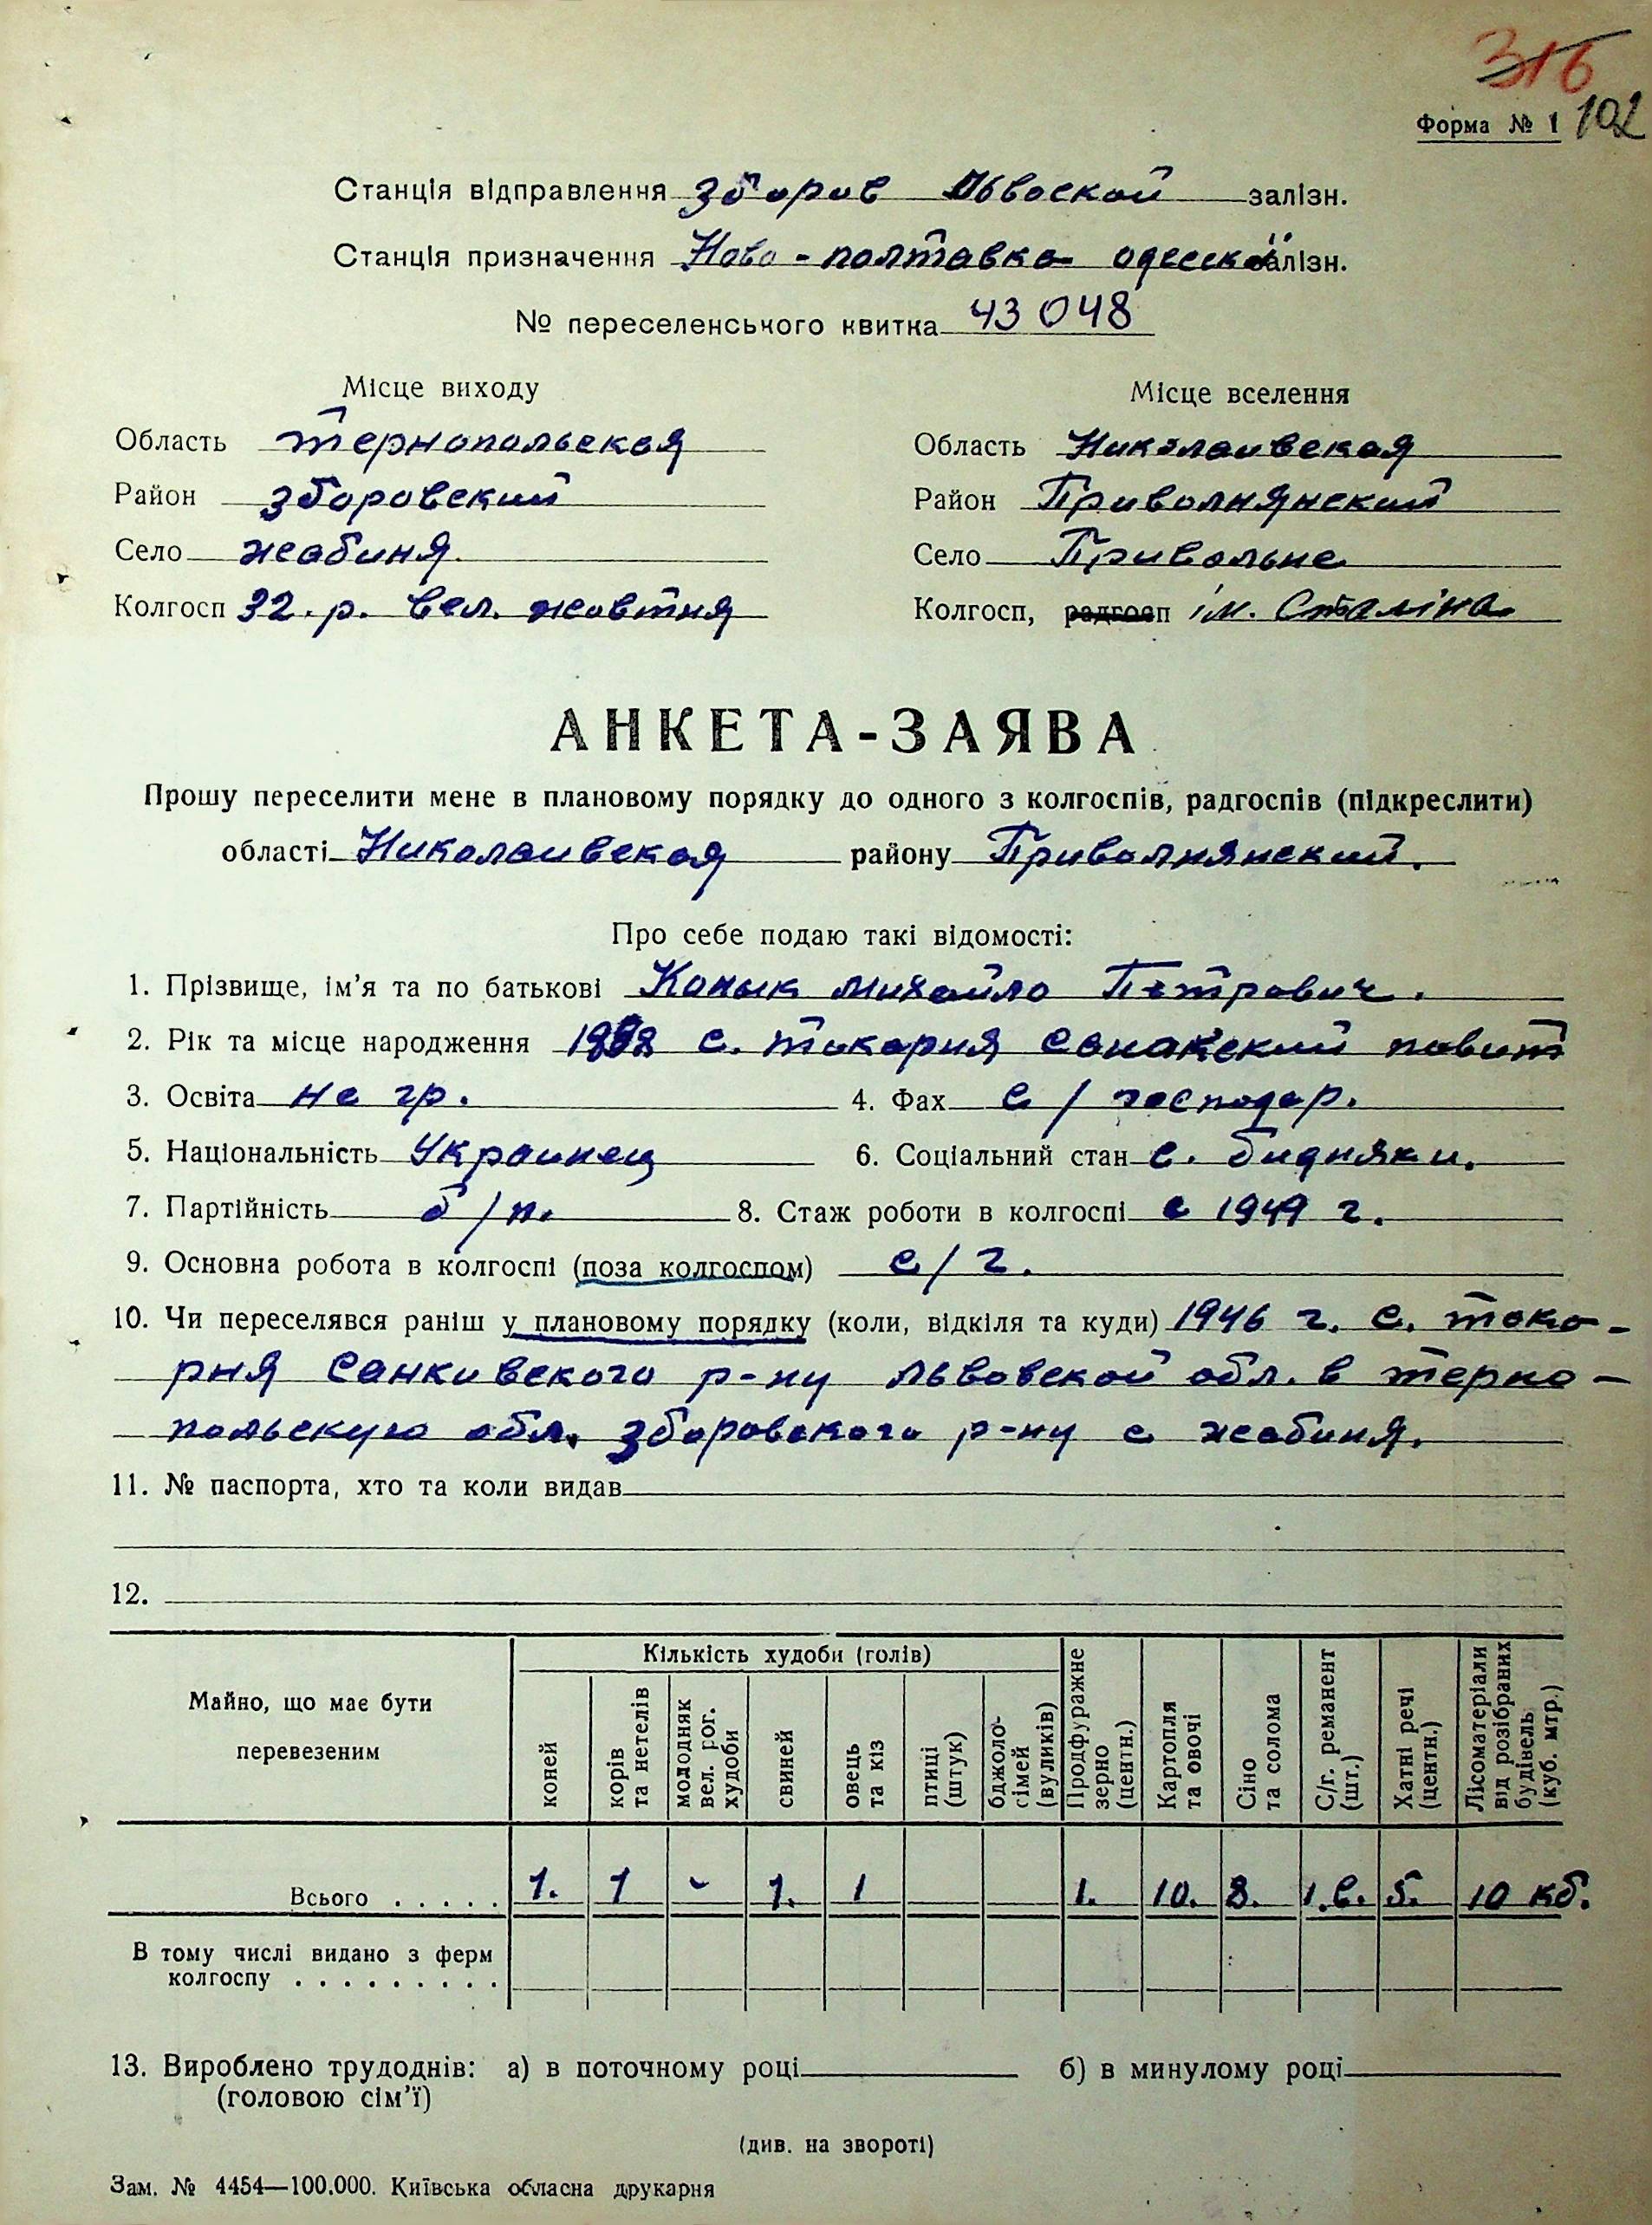 316
Форма № 1 102
Станція відправлення Зборов Львоской залізн.
Станція призначення Ново-полтавка одеської залізн.
№ переселенського квитка 43048
Місце виходу Місце вселення
Область тернопольская Область Николаивская
Район зборовский Район Приволнянский
Село жабиня Село Привольне
Колгосп 32.р. вел. жовтня Колгосп, радгосп ім. Сталіна
АНКЕТА-ЗАЯВА
Прошу переселити мене в плановому порядку до одного з колгоспів, радгоспів (підкреслити)
області Николаивская району Приволнянский.
Про себе подаю такі відомості:
1. Прізвище, ім'я та по батькові Конык михайло Петрович.
2. Рік та місце народження с. токарня санакский повит
3. Освіта не гр. 4. Фах с/господар.
5. Національність Украинец 6. Соціальний стан с. бидняки.
7. Партійність б/п. 8. Стаж роботи в колгоспі с 1949 г.
9. Основна робота в колгоспі (поза колгоспом) с/г.
10. Чи переселявся раніш у плановому порядку (коли, відкіля та куди) 1946 г. с. тока-
рня санкивского р-ну львовской обл. в терно-
польскую обл. зборовского р-ну с жабиня.
11. № паспорта, хто та коли видав
12.
Майно, що має бути перевезеним Кількість худоби (голів)
коней корів та нетелів молодняк вел. рог. худоби свиней овець та кіз птиці (штук) бджоло-сімей (вуликів) Продфуражне зерно (центн.) Картопля та овочі Сіно та солома С/г. реманент (шт.) Хатні речі (центн.) Лісоматеріали від розібраних будівель (куб. мтр.)
Всього . . . . . 1. 1 - 1. 1 1. 10. 8. 1.в. 5. 10 кб.
В тому числі видано з ферм
колгоспу . . . . . . . . .
13. Вироблено трудоднів: а) в поточному році б) в минулому році
(головою сім'ї)
(див. на звороті)
Зам. № 4454—100.000. Київська обласна друкарня